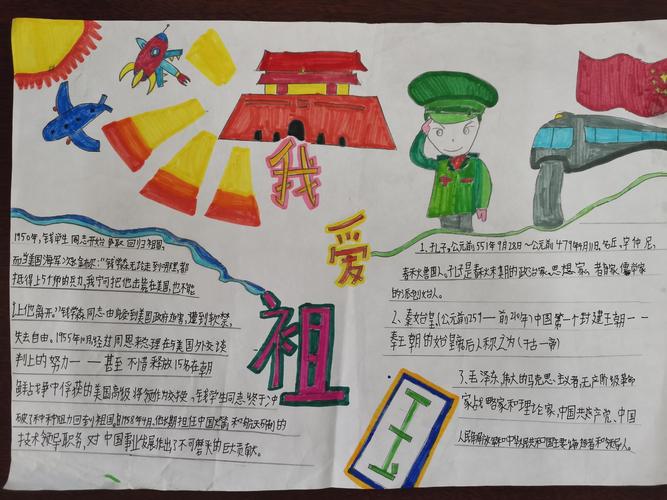 我
爱
祖
1950年，钱学生同志开始争取回归祖国，
而当美国海军次长金布尔："钱学森无论走到哪里，都
抵得上5个师的兵力，我宁可把他击毙在美国，也不能
让他离开。"钱学森同志由此受到美国政府迫害，遭到软禁，
失去自由。1955年10月经过周恩来总理在与美国外交谈
判上的努力——甚至不惜释放15名在朝
鲜战争中俘获的美国高级将领作为交换，钱学生同志终于冲
破了种种阻力回到祖国，自1958年4月，他长期担任中国火箭和航天研制的
技术领导职务，对中国事业发展作出了不可磨灭的巨大贡献。
1、孔子，公元前551年9月28日~公元前479年4月11日，名丘，字仲尼，
春秋鲁国人。孔子是春秋末期的政治家、思想家、教育家，儒学
的创始人。
2、秦始皇，（公元前259——前210年）中国第一个封建王朝——
秦王朝的始皇帝后人称之为（千古一帝）
3、毛泽东，伟大的马克思主义者，无产阶级革命
家战略家和理论家，中国共产党、中国
人民解放军和中华人民共和国主要缔造者和领导人。